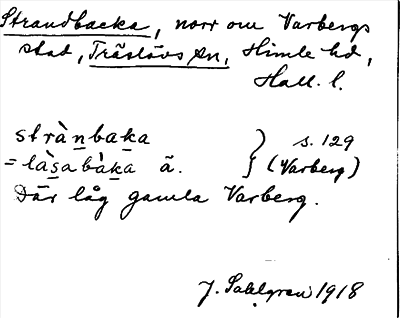 Strandbacka, norr om Varbergs
stad, Träslövs sn, Himle hd,
Hall. l.
strànbaka } s. 129
= làsabàka ä. (Varberg)
Där låg gamla Varberg.
J. Sahlgren 1918